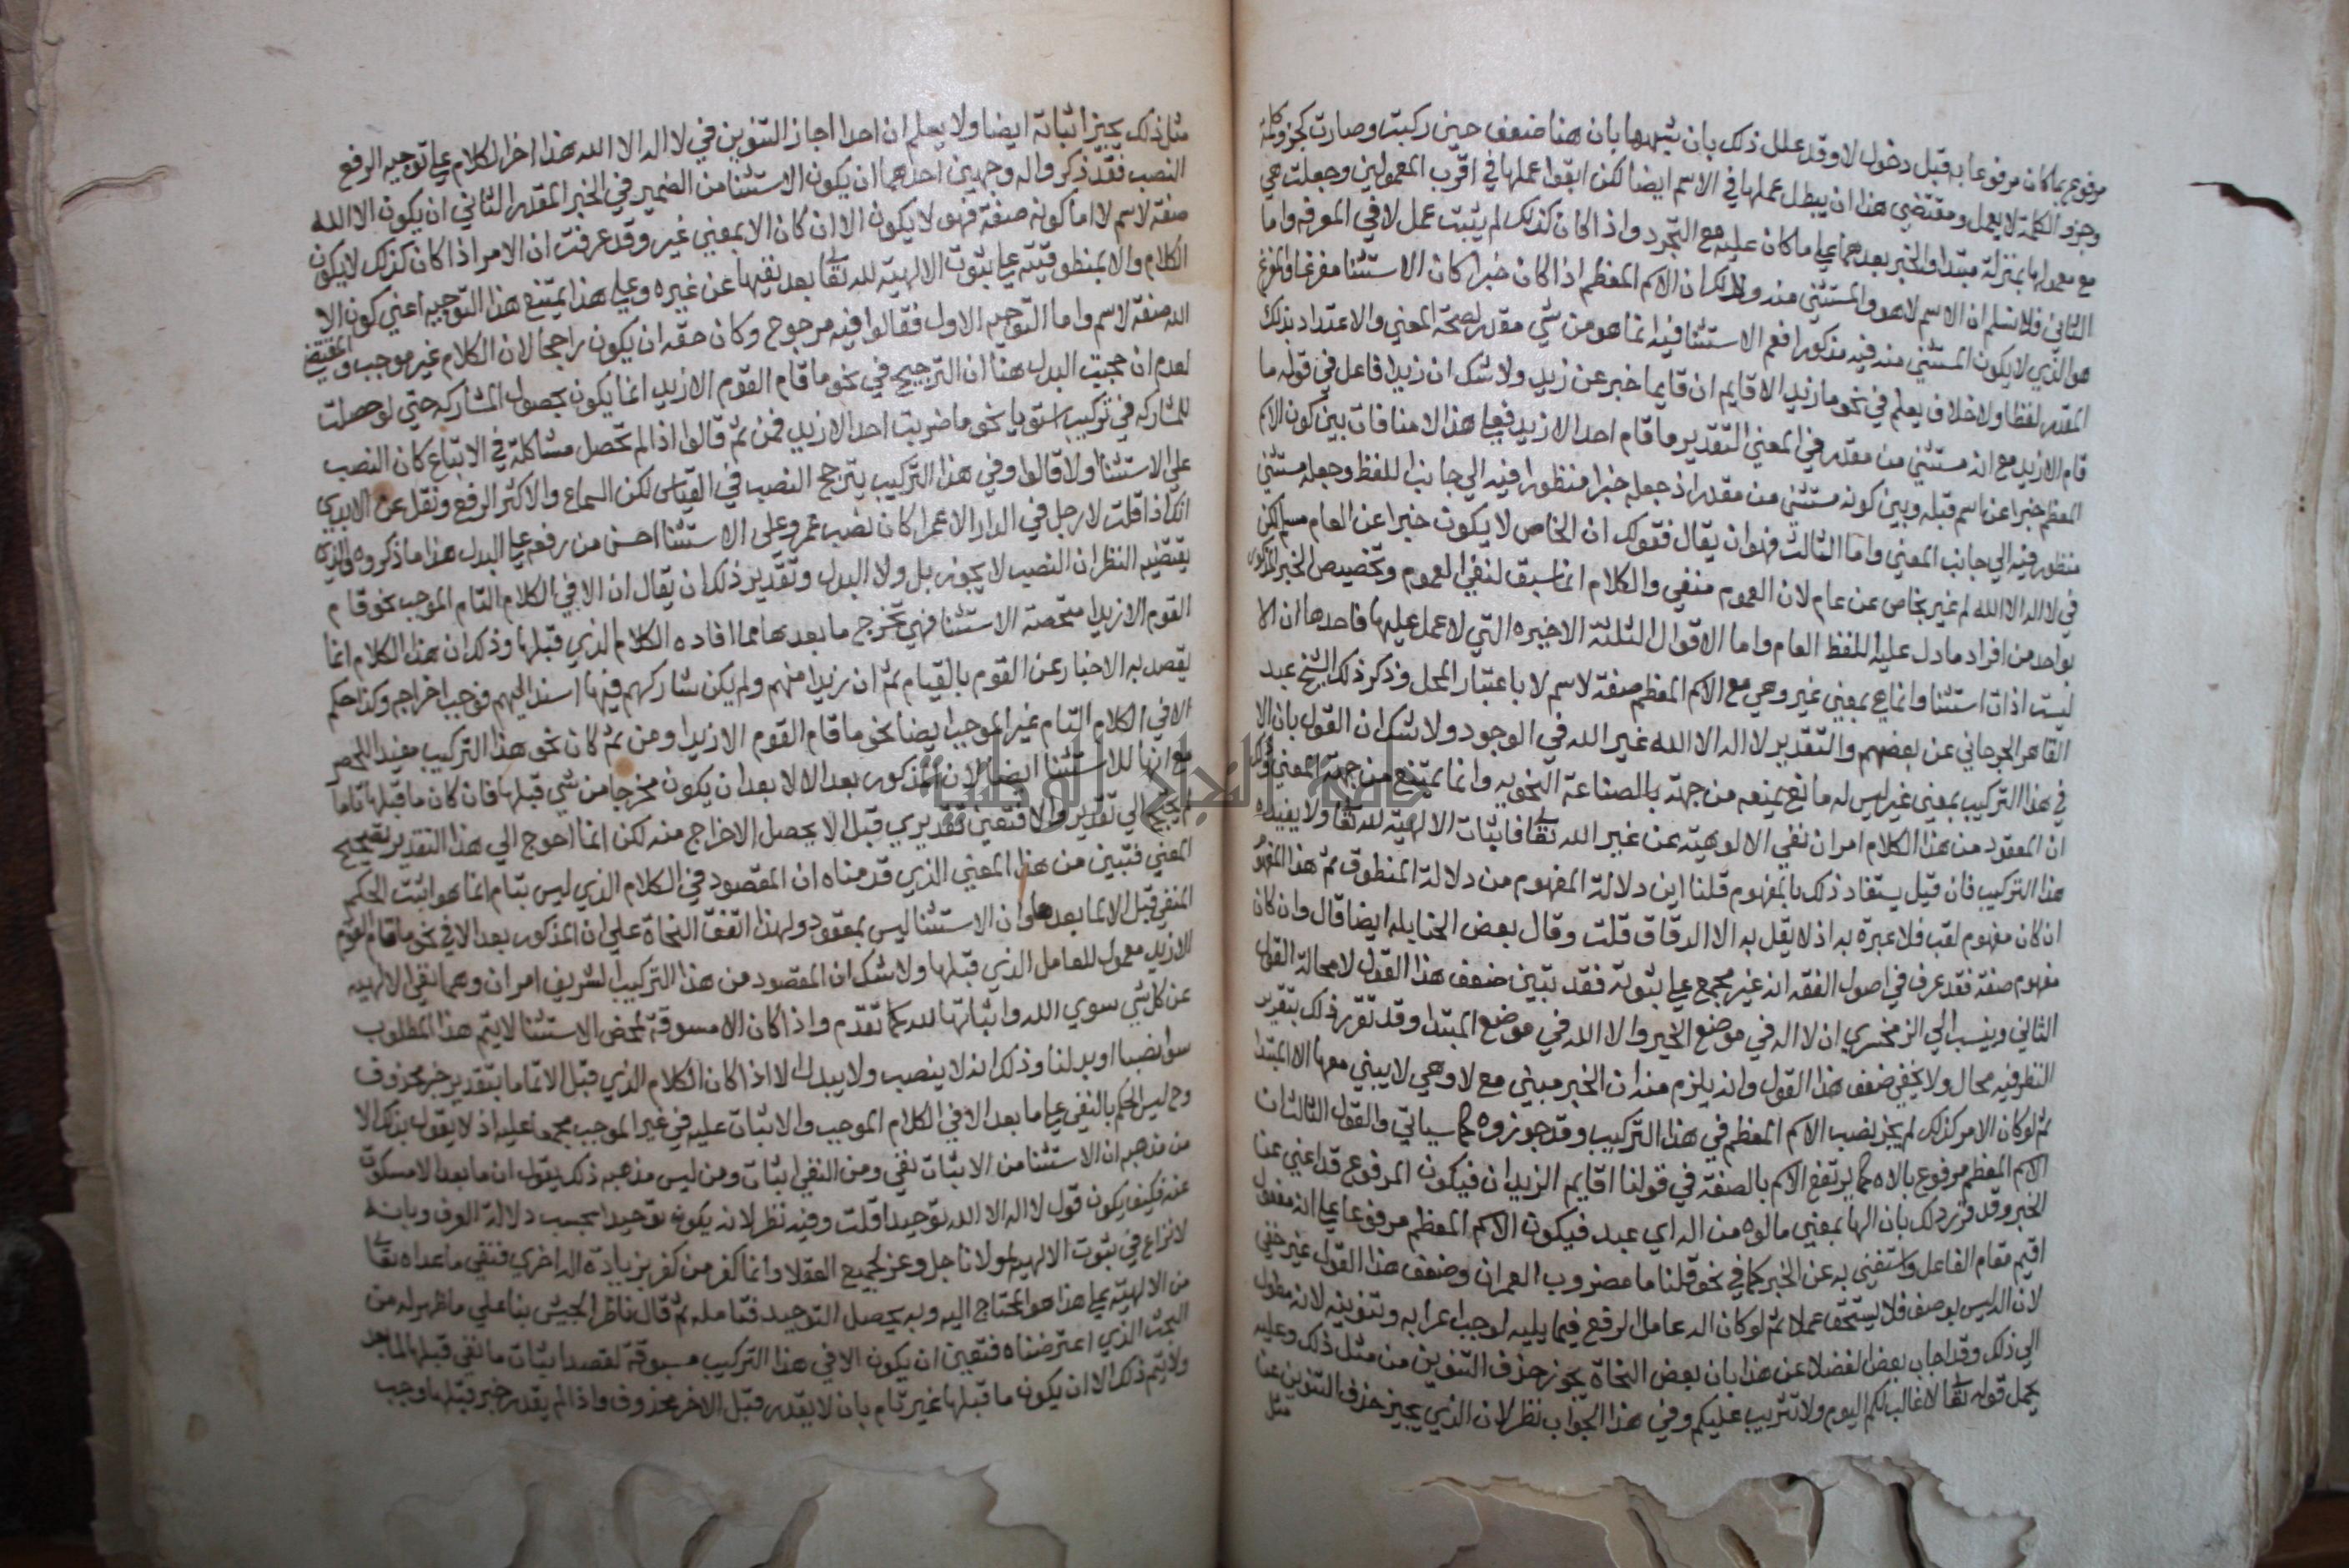 مرفوع بما كان مرفوعا به قبل دخول لا وقد علل ذلك بان شبهها بان هنا ضعف حين ركبت وصارت كجزو كلمة
وجزو الكلمة لا يعمل ومقتضي هذا ان يبطل عملها في الاسم ايضا لكن ابقوا عملها في اقرب المعمولين وجعلت هي
مع معمولها بمنزلة مبتدا والخبر بعدهما علي ما كان عليه مع التجرد واذا كان كذلك لم يثبت عمل لا في المعرفه واما
الثاني فلا نسلم ان الاسم لا هو والمستثني منه وذلك ان الاسم المعظم اذا كان خبرا كان الاستثنا مفرغا والمفرغ
هو الذي لا يكون المستثني منه فيه مذكورا فعم الاستثنا فيه انما هو من شي مقدر لصحة المعني والاعتداد بذلك
المقدر لفظا ولا خلاف يعلم في نحو ما زيد الا قايم ان قايما خبر عن زيد ولا شك ان زيدا فاعل في قوله ما
قام الا زيد مع انه مستثني من مقدر في المعني التقدير ما قام احد الا زيد فعلي هذا لا منافات بين كون الاسم
المعظم خبرا عن اسم قبله وبين كونه مستثني من مقدر اذ جعله خبرا منظورا فيه الي جانب اللفظ وجعله مستثني
منظور فيه الي جانب المعني واما الثالث فهو ان يقال فقولك ان الخاص لا يكون خبرا عن العام مسلم لكن
في لا اله الا الله لم غير بخاص عن عام لان العموم منفي والكلام انما سيق لنفي العموم وتخصيص الخبر المذكور
بواحد من افراد ما دل عليه اللفظ العام واما الاقوال الثلثة الاخيره التي لا عمل عليها فاحدها ان الا
ليست اداة استثنا وانما هي بمعني غير وهي مع الاسم المعظم صفة لاسم لا باعتبار المحل وذكر ذلك الشيخ عبد
القاهر الجرجاني عن بعضهم والتقدير لا اله الا الله غير الله في الوجود ولا شك ان القول بان الا
في هذا التركيب بمعني غير ليس له مانع يمنعه من جهته بالصناعة النحويه وانما يمتنع من جهة المعني وذلك
ان المقصود من هذا الكلام امران نفي الالوهية عن غير الله تعا فاثبات الالهية لله تعا ولا يفيده
هذا التركيب فان قيل يستفاد ذلك بالمفهوم قلنا اين دلالة المفهوم من دلالة المنطوق ثم هذا المفهوم
ان كان مفهوم لقب فلا عبرة به اذ لا يقل به الا الدقاق قلت وقال بعض الحنابله ايضا قال وان كان
مفهوم صفة فقد عرف في اصول الفقه انه غير مجمع علي ثبوته فقد تبين ضعف هذا القول لا محالة القول
الثاني وينسب الي الزمخشري ان لا اله في موضع الخبر والا الله في موضع المبتدا وقد تقرر ذلك بتقرير
النظر فيه مجال ولا يخفي ضعف هذا القول وانه يلزم منه ان الخبر مبني مع لا وهي لا يبني معها الا المبتدا
ثم لو كان الامر كذلك لم يجز نصب الاسم المعظم في هذا التركيب وقد جوزوه كما سياتي والقول الثالث ان
الاسم المعظم مرفوع بالاه كما يرتفع الاسم بالصفة في قولنا اقايم الزيدان فيكون المرفوع قد اغني عن
الخبر وقد قرر ذلك بان الها بمعني مالوه من اله اي عبد فيكون الاسم المعظم مرفوعا علي انه مفعول
اقيم مقام الفاعل واستغني به عن الخبر كما في نحو قلنا ما مضروب العمران وضعف هذا القول غير خفي
لان اله ليس بوصف فلا يستحق عملا ثم لو كان اله عامل الرفع فيما يليه لوجب اعرابه وتنوينه لانه مطول
الي ذلك وقد اجاب بعض الفضلا عن هذا بان بعض النحاة يجوز حذف التنوين من مثل ذلك وعليه
يحمل قوله تعا لا غالب لكم اليوم ولا تثريب عليكم وفي هذا الجواب نظر لان الذي يجيز حذف التنوين عن
مثل
مثل ذلك يجيز اثباته ايضا ولا يعلم ان احدا اجاز التنوين في لا اله الا الله هذا اخر الكلام علي توجيه الرفع
النصب فقد ذكروا له وجهين احدهما ان يكون الاستثنا من الضمير في الخبر المقدر الثاني ان يكون الا الله
صفة لاسم لا اما كونه صفة فهو لا يكون الا ان كان الا بمعني غير وقد عرفت ان الامر اذا كان كذلك لا يكون
الكلام دالا بمنطوقيته علي ثبوت الالهية لله تعا بعد نفيها عن غيره وعلي هذا يمتنع هذا التوجيه اعني كون الا
الله صفة لاسم واما التوجيه الاول فقالوا فيه مرجوح وكان حقه ان يكون راجحا لان الكلام غير موجب والمقتضي
لعدم ارجحيت البدل هنا ان الترجيح في نحو ما قام القوم الا زيد انما يكون بحصول المشاركه حتي لو حصلت
للمشاركه في تركيب استويا نحو ما ضربت احدا الا زيد فمن ثم قالوا اذا لم تحصل مشاكلة في الاتباع كان النصب
علي الاستثنا اولا قالوا وفي هذا التركيب يترجح النصب في القياس لكن السماع والاكثر الرفع ونقل عن الابدي
انك اذا قلت لا رجل في الدار الا عمرا كان نصب عمرو علي الاستثنا احسن من رفعه علي البدل هذا ما ذكروه والذي
يقتضيه النظر ان النصب لا يجوز بل ولا البدل وتقدير ذلك ان يقال ان الا في الكلام التام الموجب نحو قام
القوم الا زيدا متمحضة الاستثنا فهي تخرج ما بعدها مما افاده الكلام الذي قبلها وذلك ان هذا الكلام انما
يقصد به الاخبار عن القوم بالقيام ثم ان زيدا منهم ولم يكن شاركهم فيها اسند اليهم فوجب اخراجه وكذا حكم
الا في الكلام التام غير الموجب ايضا نحو ما قام القوم الا زيدا ومن ثم كان نحو هذا التركيب مفيد اللحصر
مع انها للاستثنا ايضا لان المذكور بعد الا لا بد ان يكون مخرجا من شي قبلها فان كان ما قبلها تاما
لم يحتج الي تقدير والا فتعين تقدير شي قبل الا يحصل الاخراج منه لكن انما احوج الي هذا التقدير تصحيح
المعني فتبين من هذا المعني الذي قدمناه ان المقصود في الكلام الذي ليس بتام انما هو اثبت الحكم
المنفي قبل الا لما بعدها وان الاستثنا ليس بمقصود ولهذا اتفق النحاة علي ان المذكور بعد الا في نحو ما قام القوم
الا زيد معمول للعامل الذي قبلها ولا شك ان المقصود من هذا التركيب الشريف امران وهما نفي الالهيه
عن كل شي سوي الله واثباتها لله كما تقدم واذا كان الا مسوقة لمحض الاستثنا لا يتم هذا المطلوب
سوا نصبنا او بدلنا وذلك انه لا ينصب ولا يبدل الا اذا كان الكلام الذي قبل الا تاما بتقدير خبر محذوف
وح ليس الحكم بالنفي علي ما بعد الا في الكلام الموجب والاثبات عليه في غير الموجب مجمعا عليه اذ لا يقول بذلك الا
من مذهبه ان الاستثنا من الاثبات نفي ومن النفي اثبات ومن ليس مذهبه ذلك يقول ان ما بعد الا مسكوت
عنه فكيف يكون قول لا اله الا الله توحيدا قلت وفيه نظر لانه يكون توحيدا بحسب دلالة العرف وبانه
لا نزاع في ثبوت الالهية لمولانا جل وعز لجميع العقلا وانما كفر من كفر بزيادة اله اخري فنفي ما عداه تعا
من الالهية علي هذا هو المحتاج اليه وبه يحصل التوحيد فتامله ثم قال ناظر الجيش بنا علي ما ظهر له من
البحث الذي اعترضناه فتعين ان يكون الا في هذا التركيب مسوقة لقصد اثبات ما نفي قبلها لما بعد
ولا يتم ذلك الا ان يكون ما قبلها غير تام بان لا يقدر قبل الا خبر محذوف واذا لم يقدر خبر قبلها وجب
جامعة النجاح الوطنية